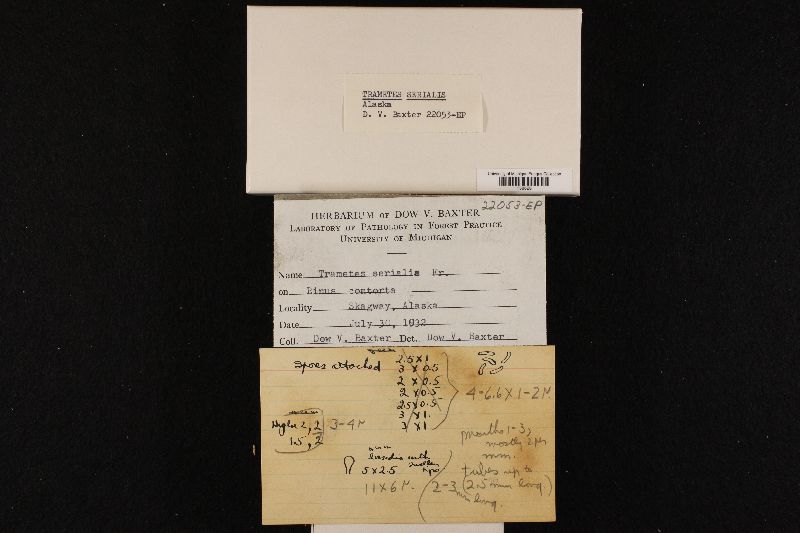 TRAMETES SERIALIS
Alaska
D. V. Baxter 22053-EP
University of Michigan Fungus Collection
22053-EP
HERBARIUM OF DOW V. BAXTER
LABORATORY OF PATHOLOGY IN FOREST PRACTICE
UNIVERSITY OF MICHIGAN
Name Trametes serialis Fr.
on Pinus contorta
Locality Skagway, Alaska
Date July 30, 1932
Coll. Dow V. Baxter Det. Dow V. Baxter
spores attached
2.5 X 1
3 X 0.5
2 X 0.5
2 X 0.5
2.5 X 0.5
3 X 1.
3 X 1
4-6.6 X 1-2 µ
Hyphae 2, 2
1.5, 2
3-4 µ
basidia with
5 X 2.5
11 X 6 µ.
mouths 1-3,
mostly 2 per
mm.
tubes up to
2-3 (2.5 mm long)
mm long.